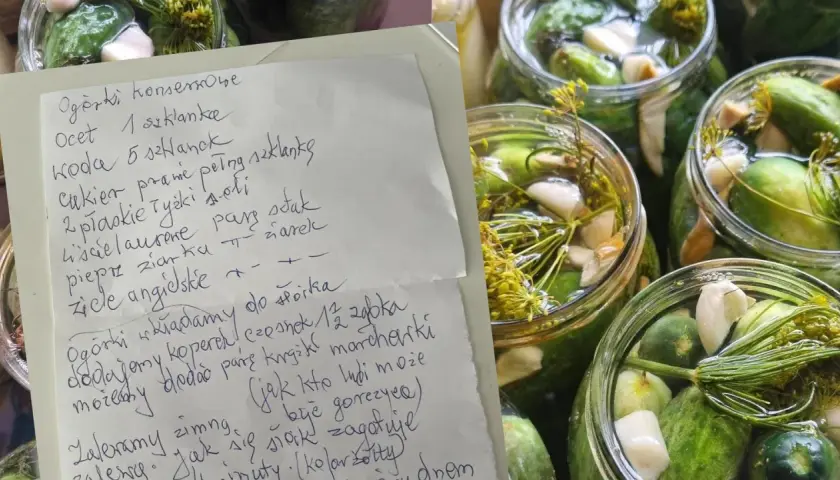 Ogórki konserwowe
Ocet 1 szklanka
woda 5 szklanek
cukier prawie pełną szklankę
2 płaskie łyżki soli
liście laurowe parę sztuk
pieprz ziarnka -"- ziarek
ziele angielskie -"-
Ogórki układamy do słoika
dodajemy koperek, czosnek 1 1/2 ząbka
możemy dodać parę krążki marchewki
(jak kto lubi może
być gorczyca)
Zalewamy zimną
zalewą. Jak się słoik zagotuje
minuty. (kolor żółty
dnem